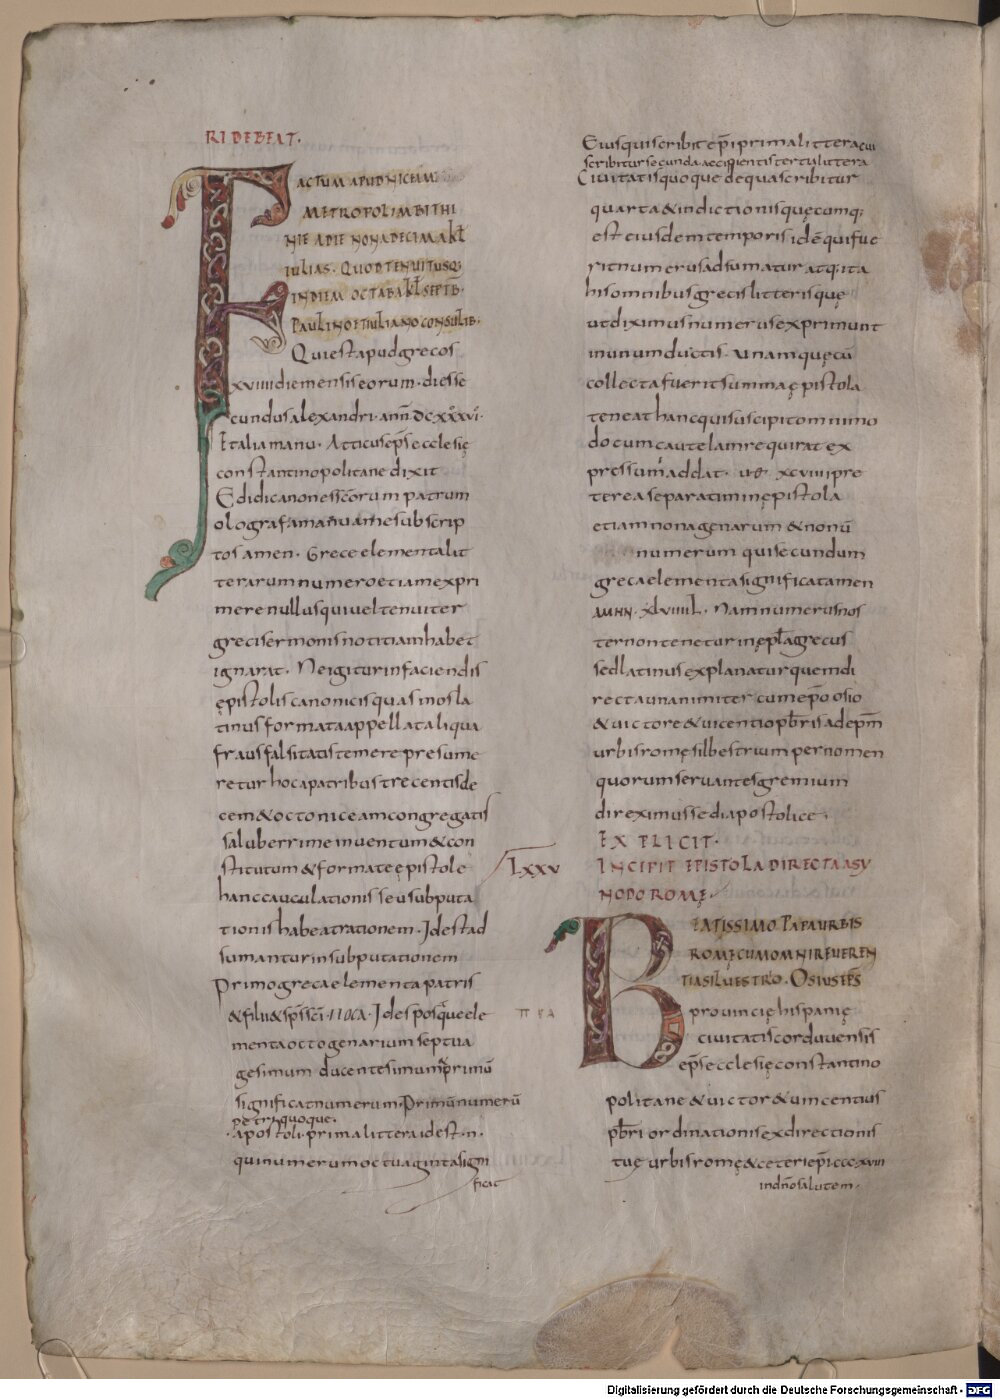 RI DEBEAT.
FACTUM APUD NICEUM
METROPOLIM BITHI
NIE A DIE NONA DECIMA kł
IULIAS. QUOD TENUIT USQ;
IN DIEM OCTABA kł SEPTB.
PAULINO ET IULIANO CONSULIB.
Qui est apud grecos
xviiii die mensis eorum. die se
cundus alexandri. ann̄ dcxxxvi.
Et alia manu. Atticus ep̄s ecclesię
constantinopolitane dixit
Edidi canones sc̄orum patrum
olografa manu a me subscrip
tos amen. Grece elementa lit
terarum numero etiam expri
mere nullus qui vel tenuiter
greci sermonis notitiam habet
ignarat. Ne igitur in faciendis
epistolis canonicis quas mos la
tinus formata appellat aliqua
fraus falsitatis temere presume
retur hoc a patribus trecentis de
cem & octo nicea congregatis
saluberrime inventum & con
stitutum & formate epistole
hanc cauculationis seu subputa
tionis habeat rationem. Id est ad
sumantur in subputationem
Primo greca elementa patris
& filii & sp̄s sc̄i.
πυα
Id es posq̄ ele
menta octogenarium septua
gesimum ducentesimum primū
significat numerum. Primū numerū
petri quoque.
apostoli. prima littera id est .n.
qui numerum octuaginta signi
ficat
Eius qui scribit ep̄i prima littera cui
scribitur secunda. accipientis tertia littera
Civitatis quoque de qua scribitur
quarta & indictionis quęcumq;
est eiusdem temporis idē qui fue
rit numerus adsumatur atq; ita
his omnibus grecis litteris quę
ut diximus numerus exprimunt
in unum ductis. Unam quę cū
collecta fuerit summa ępistola
teneat hanc qui suscipit omni mo
do cum cautelam requirat ex
pressum addat. xcviiii pre
terea separatim in ępistola
etiam nonagenarum & nonū
numerum qui secundum
greca elementa significat amen
Nam numerus nos
ter non tenetur in epła grecus
sed latinus explanatur quem di
recta unanimiter cum ep̄o osio
& victore & vicentio pb̄ris ad ep̄m
urbis romę silbestrium per nomen
quorum servantes gremium
direximus sedi apostolice.
EXPLICIT.
LXXV
INCIPIT EPISTOLA DIRECTA A SY
NODO ROMĘ.
BEATISSIMO PAPA URBIS
ROMĘ CUM OMNI REVEREN
TIA SILVESTRO. OSIUS EP̄S
provincię hispanię
civitatis corduvensis
ep̄s ecclesię constantino
politane & victor & vincentius
pb̄ri ordinationis ex directionis
tuę urbis romę & ceteri ep̄i cccxviii
in dn̄o salutem.
Digitalisierung gefördert durch die Deutsche Forschungsgemeinschaft - DFG